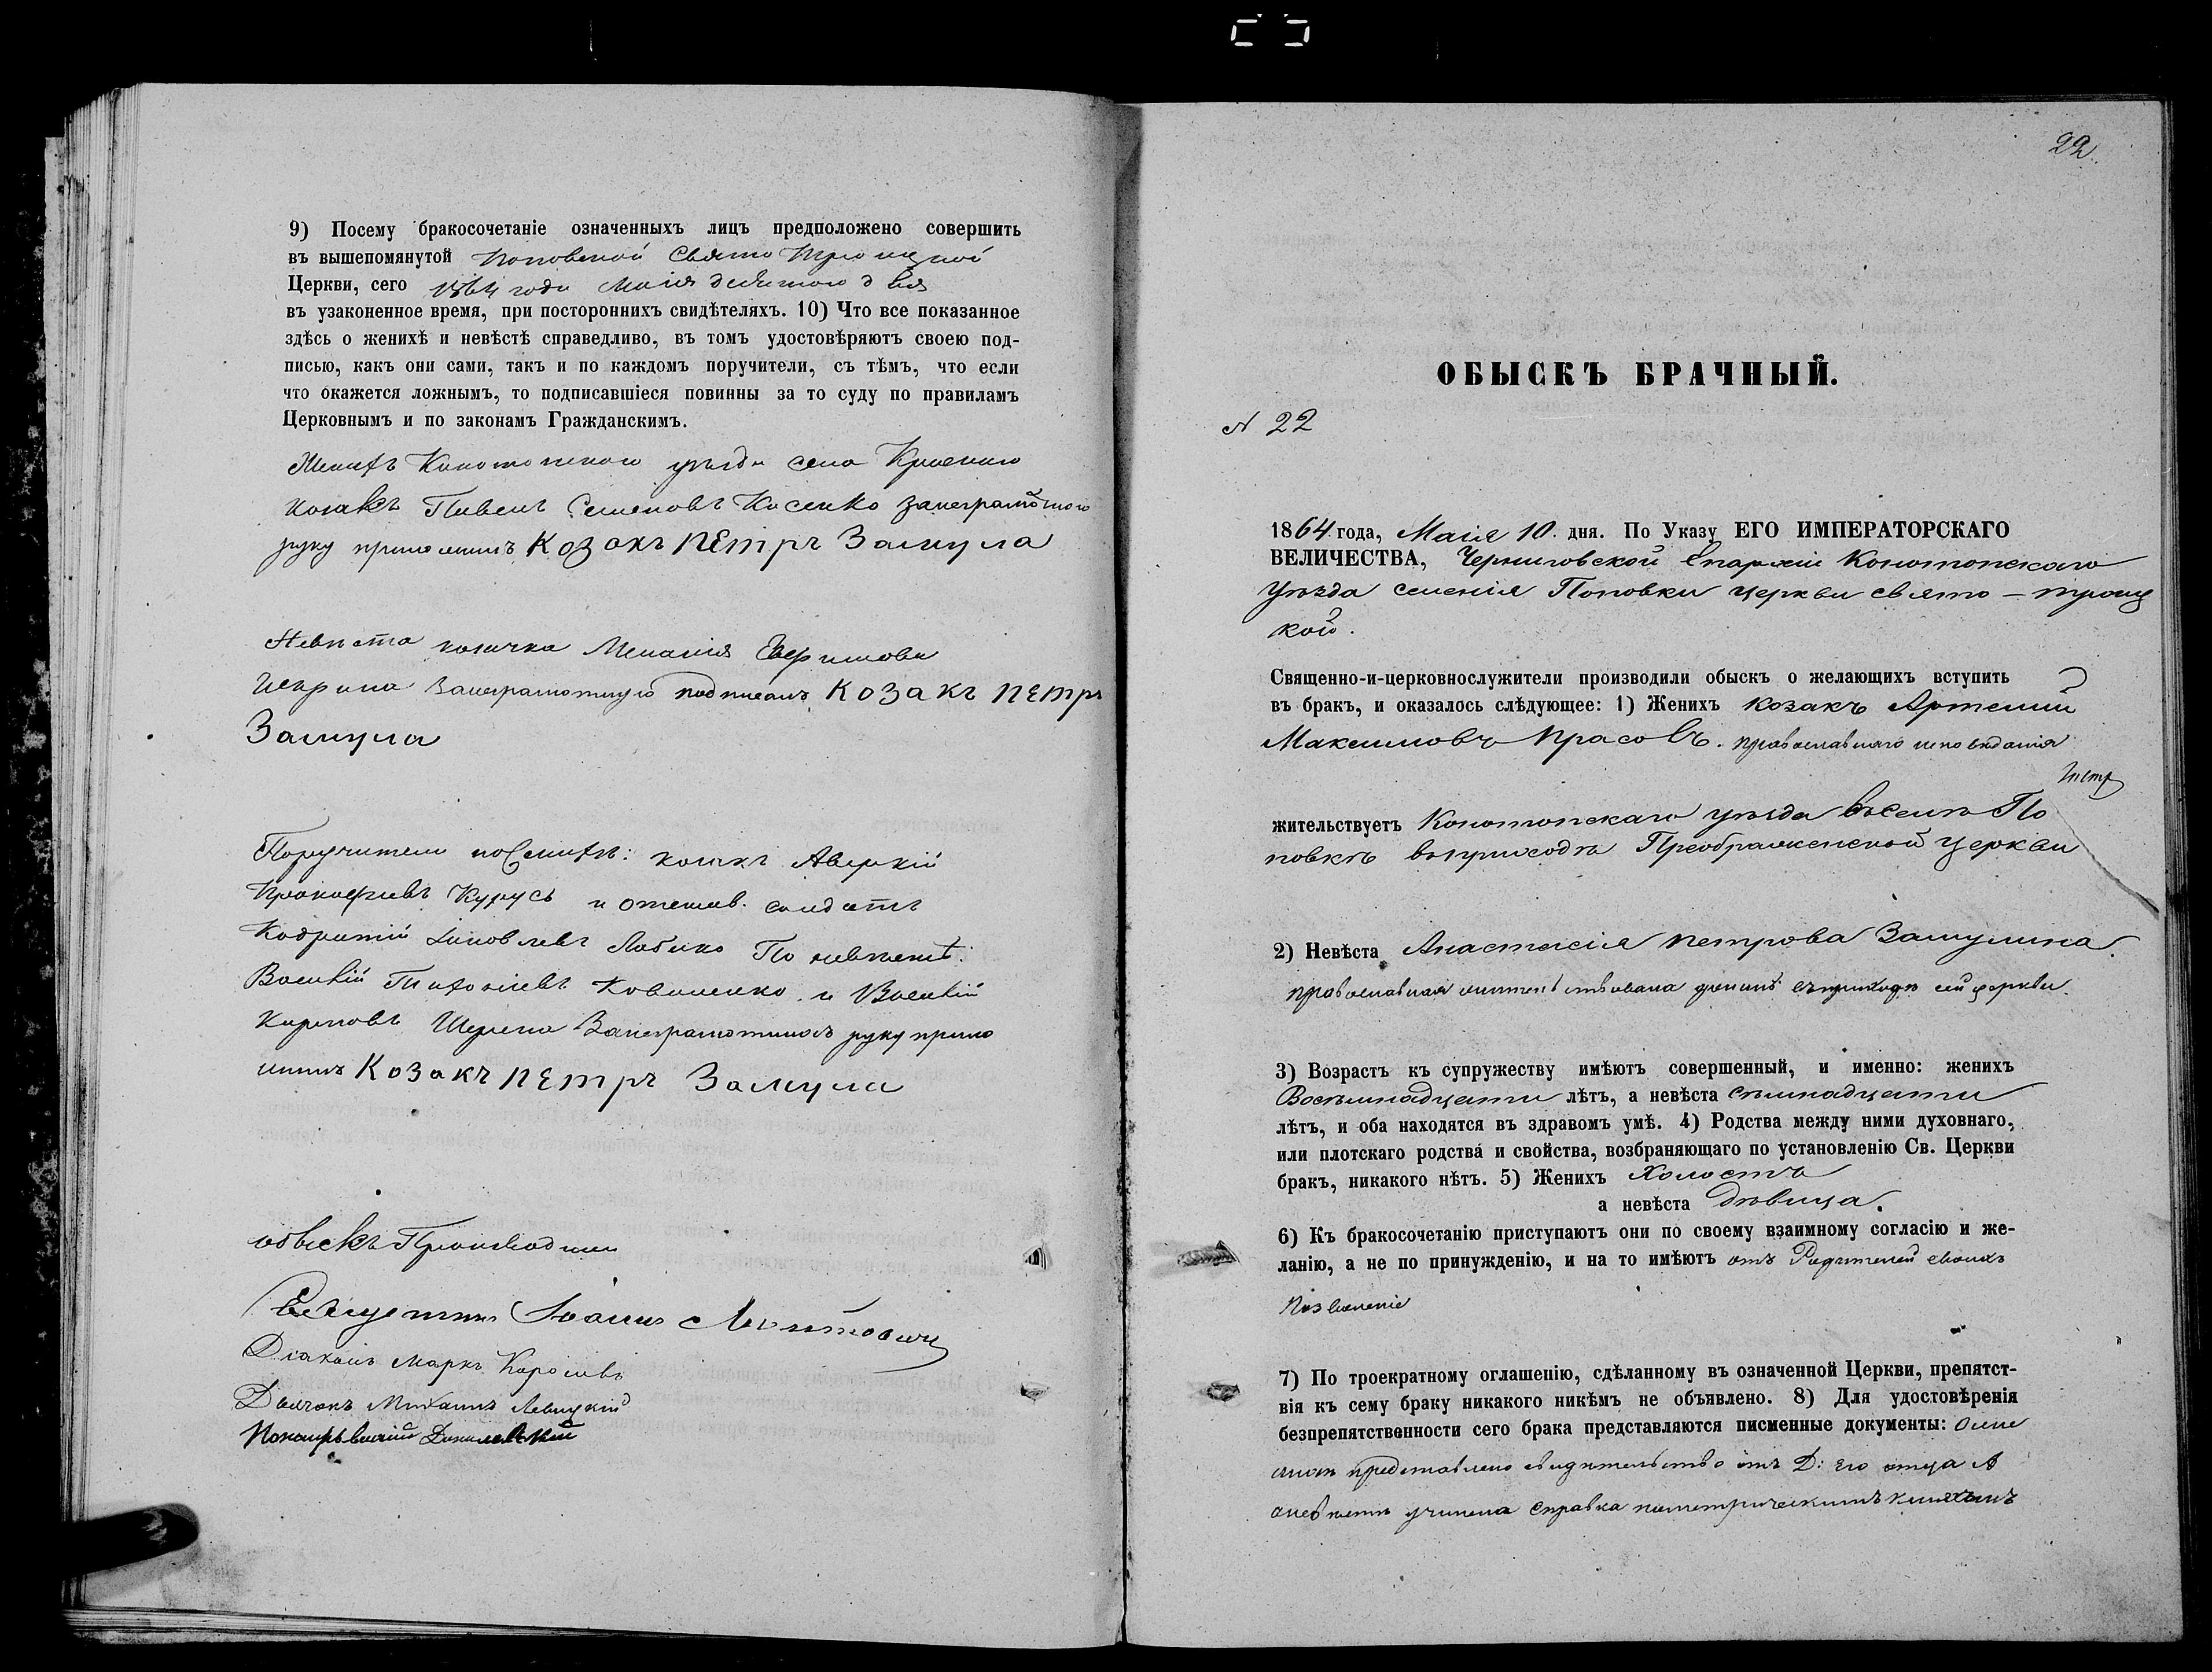 9) Посему бракосочетаніе означенныхъ лицъ предположено совершить
въ вышепомянутой Поповской Свято Троицкой
Церкви, сего 1864 года Маія десятого дня
въ узаконенное время, при постороннихъ свидѣтеляхъ. 10) Что все показанное
здѣсь о женихѣ и невѣстѣ справедливо, въ томъ удостовѣряютъ своею под-
писью, какъ они сами, такъ и по каждомъ поручители, съ тѣмъ, что если
что окажется ложнымъ, то подписавшіеся повинны за то суду по правиламъ
Церковнымъ и по законамъ Гражданскимъ.
Женихъ Конотопского уѣзда села
козакъ Семеновъ Косенко занеграмотного
руку приложилъ Козакъ Петръ Замула
Невѣста козачка Меланія
занеграмотную подписалъ Козакъ Петръ
Замула
Поручители поженихѣ: козакъ Аверкій
Прокофіевъ Курусь и отстав. солдатъ
Яковлевъ По невѣстѣ:
Василій Коваленко и Василій
Карповъ Занеграмотныхъ руку прило
жилъ Козакъ Петръ Замула
обыскъ Производили
Іоаннъ
Діаконъ Маркъ
Дьячокъ Михаилъ Левицкій
22
ОБЫСКЪ БРАЧНЫЙ.
№ 22
1864 года, Маія 10. дня. По Указу ЕГО ИМПЕРАТОРСКАГО
ВЕЛИЧЕСТВА, Черниговской Епархіи Конотопскаго
уѣзда селенія Поповки церкви свято-троиц
кой.
Священно-и-церковнослужители производили обыскъ о желающихъ вступить
въ бракъ, и оказалось слѣдующее: 1) Женихъ козакъ Артемий
Максимовъ Прасовъ. православнаго исповѣданія
жительствуетъ Конотопскаго уѣзда въселѣ По
повкѣ въприходѣ Преображенской церкви
2) Невѣста Анастасія Петрова Замулина.
православная въприходѣ сей церкви.
3) Возрастъ къ супружеству имѣютъ совершенный, и именно: женихъ
Восѣмнадцати лѣтъ, а невѣста сѣмнадцати
лѣтъ, и оба находятся въ здравомъ умѣ. 4) Родства между ними духовнаго,
или плотскаго родства́ и свойства, возбраняющаго по установленію Св. Церкви
бракъ, никакого нѣтъ. 5) Женихъ Холостъ
а невѣста дѣвица.
6) Къ бракосочетанію приступаютъ они по своему взаимному согласію и же-
ланію, а не по принужденію, и на то имѣютъ отъ Родителей своихъ
Позволеніе
7) По троекратному оглашенію, сдѣланному въ означенной Церкви, препятст-
вія къ сему браку никакого никѣмъ не объявлено. 8) Для удостовѣренія
безпрепятственности сего брака представляются писменные документы: Оже
нихѣ представлено свидѣтельство отъ Д: его отца А
оневѣстѣ учинена справка пометрическимъ книгамъ